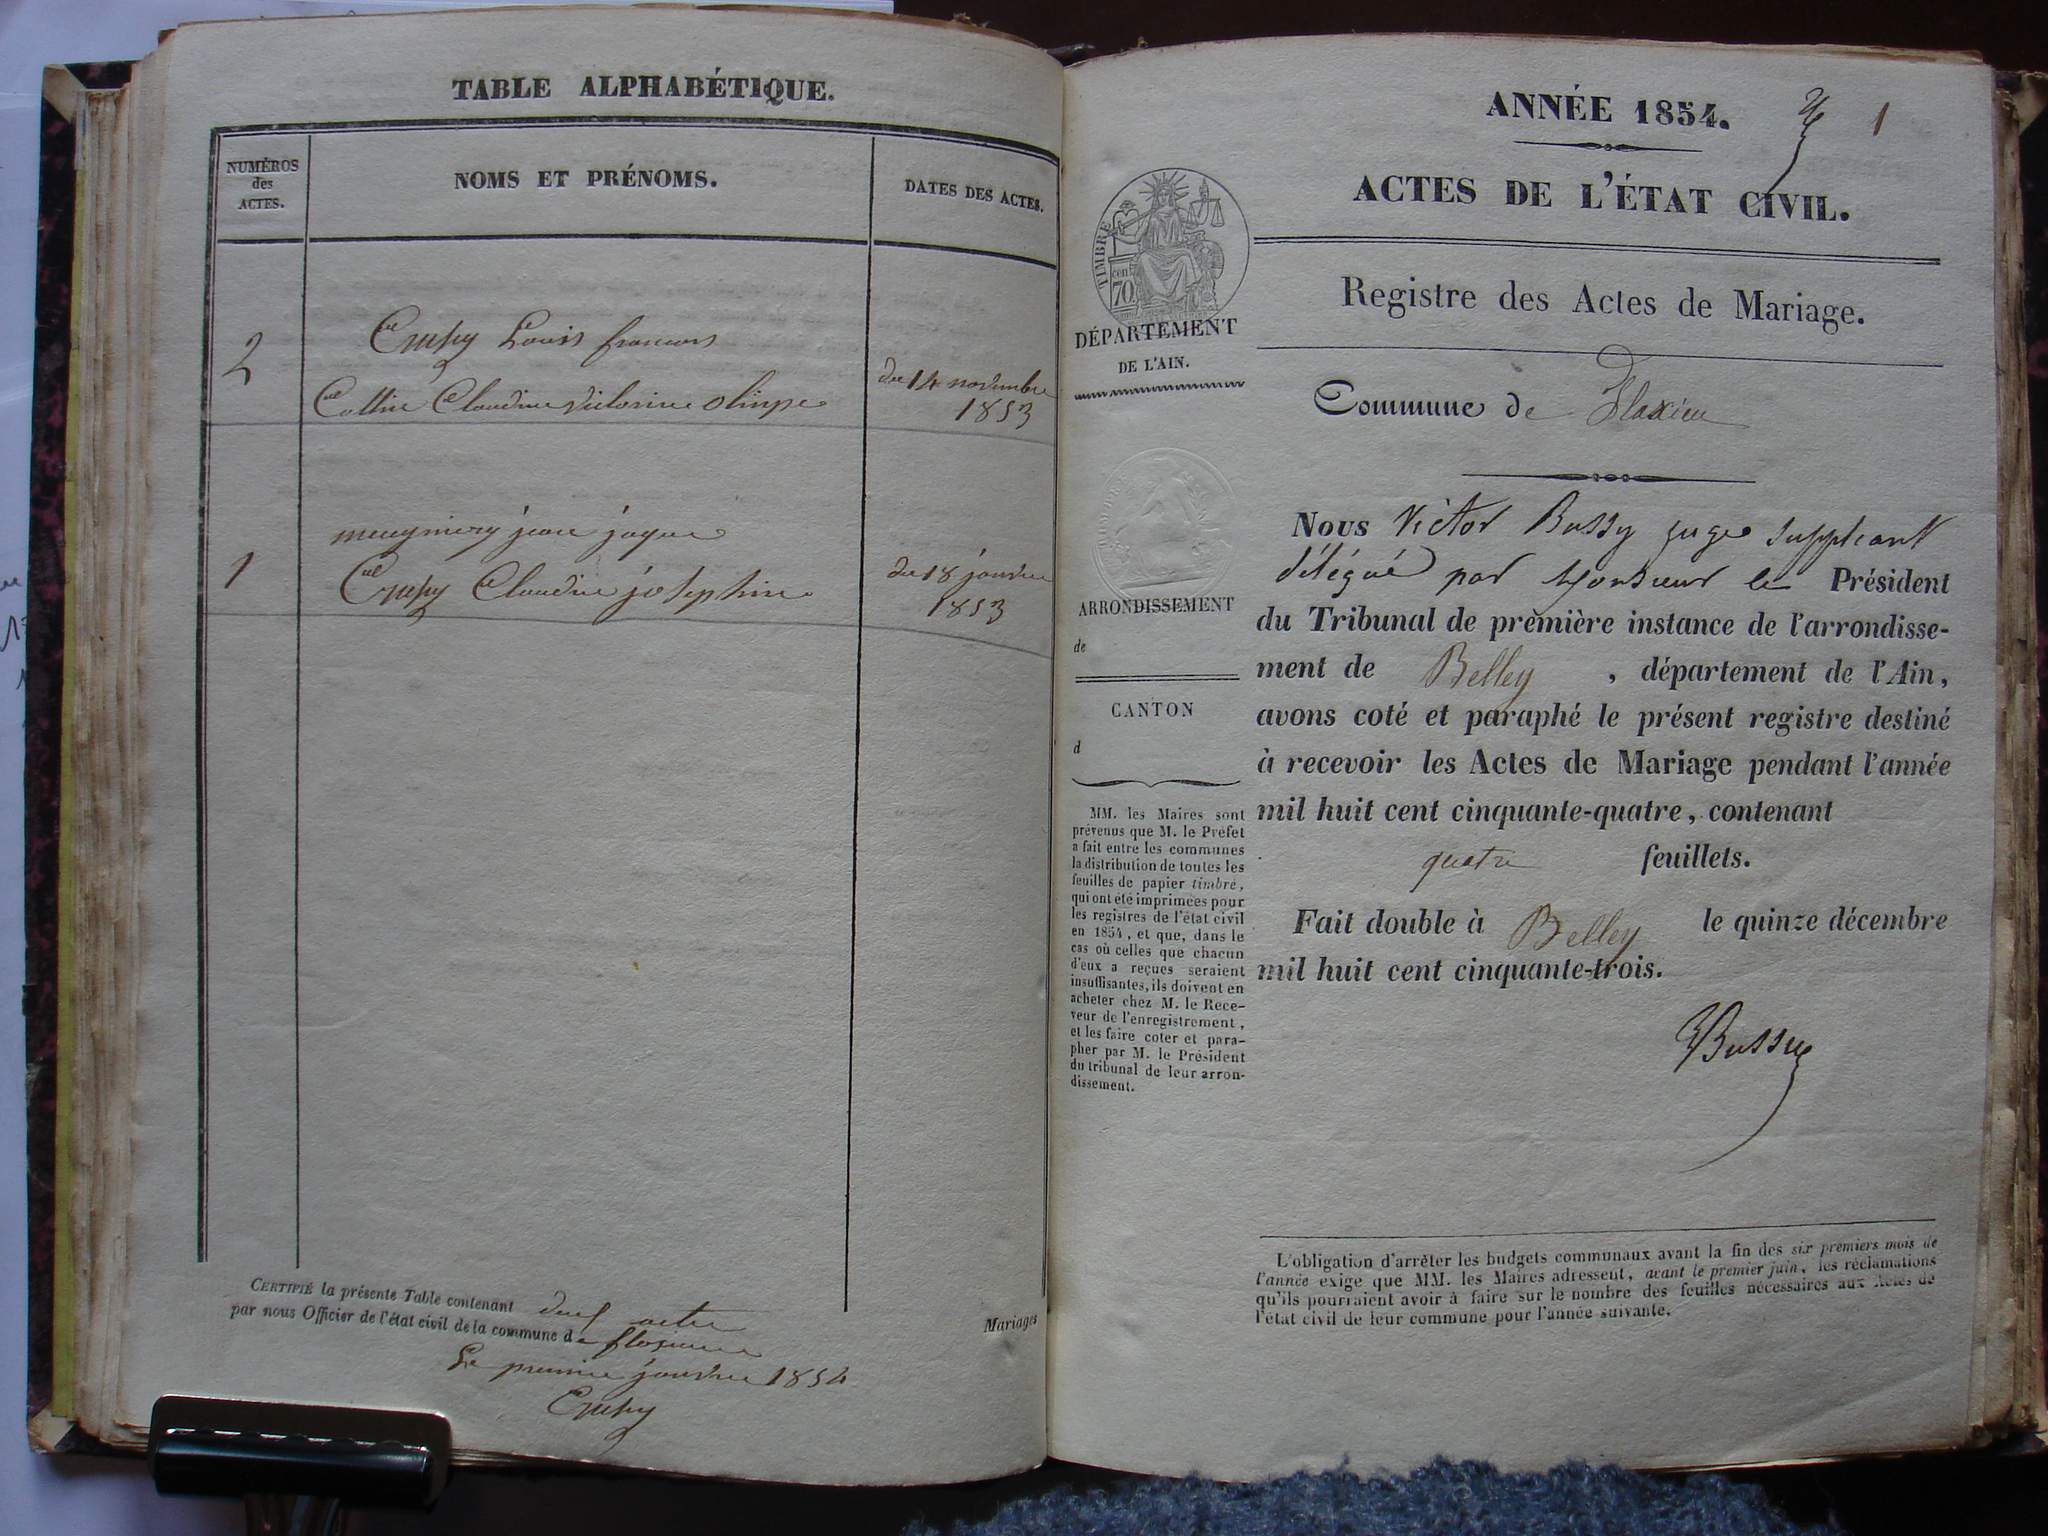 TABLE ALPHABÉTIQUE.
NUMÉROS
des
ACTES.
NOMS ET PRÉNOMS.
DATES DES ACTES.
2
Louis francois
Collin Claudine victorine olimpe
du 14 novembre
1853
1
jean jaque
Claudine josephine
du 18 janvier
1853
CERTIFIÉ la présente Table contenant deux actes
par nous Officier de l'état civil de la commune de flaxieu
Le premier janvier 1854
Mariages
ANNÉE 1854.
1
ACTES DE L'ÉTAT CIVIL.
Registre des Actes de Mariage.
TIMBRE
cent
70
DÉPARTEMENT
DE L'AIN.
Commune de Flaxieu
ARRONDISSEMENT
de
CANTON
d
MM. les Maires sont
prévenus que M. le Préfet
a fait entre les communes
la distribution de toutes les
feuilles de papier timbré,
qui ont été imprimées pour
les registres de l'état civil
en 1854, et que, dans le
cas où celles que chacun
d'eux a reçues seraient
insuffisantes, ils doivent en
acheter chez M. le Rece-
veur de l'enregistrement,
et les faire coter et para-
pher par M. le Président
du tribunal de leur arron-
dissement.
Nous Victor Bussy juge suppleant
délégué par Monsieur le Président
du Tribunal de première instance de l'arrondisse-
ment de Belley , département de l'Ain,
avons coté et paraphé le présent registre destiné
à recevoir les Actes de Mariage pendant l'année
mil huit cent cinquante-quatre, contenant
quatre feuillets.
Fait double à Belley le quinze décembre
mil huit cent cinquante-trois.
VBussy
L'obligation d'arrêter les budgets communaux avant la fin des six premiers mois de
l'année exige que MM. les Maires adressent, avant le premier juin, les réclamations
qu'ils pourraient avoir à faire sur le nombre des feuilles nécessaires aux Actes de
l'état civil de leur commune pour l'année suivante.